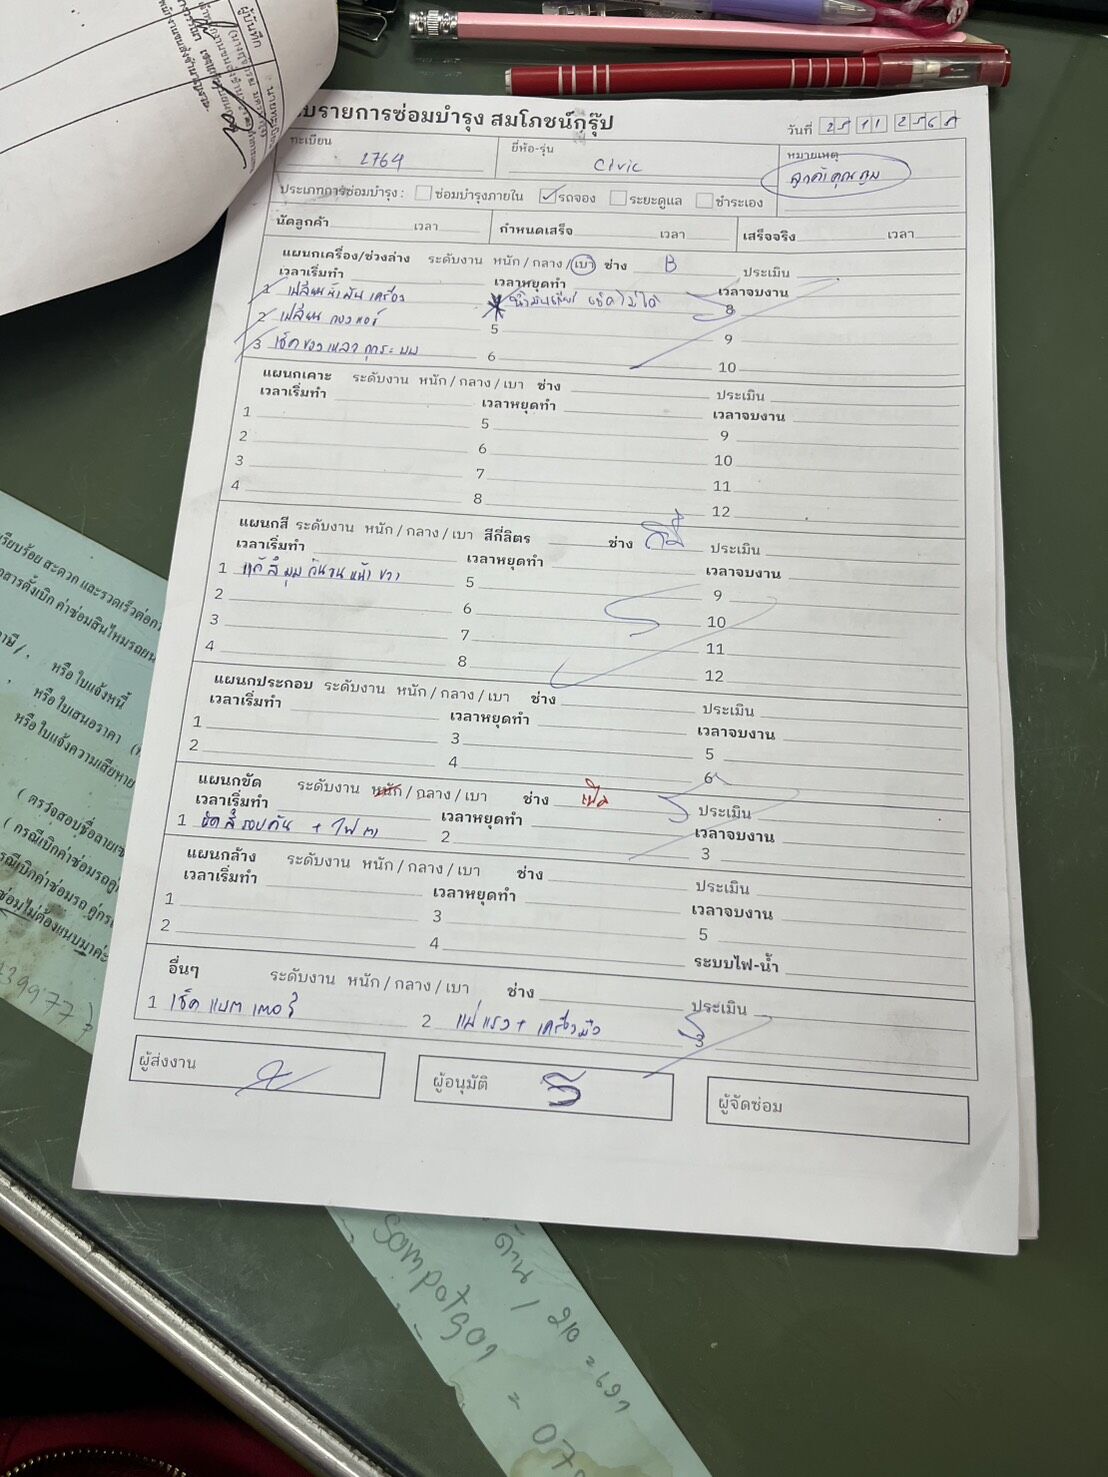 ใบรายการซ่อมบำรุง สมโภชน์กรุ๊ป
วันที่ 25 11 256
ทะเบียน 2764 ยี่ห้อ-รุ่น Civic หมายเหตุ ลูกค้าคุณภูม
ประเภทการซ่อมบำรุง : ซ่อมบำรุงภายใน รถจอง ระยะดูแล ชำระเอง
นัดลูกค้า เวลา กำหนดเสร็จ เวลา เสร็จจริง เวลา
แผนกเครื่อง/ช่วงล่าง ระดับงาน หนัก / กลาง / เบา ช่าง B ประเมิน
เวลาเริ่มทำ เวลาหยุดทำ เวลาจบงาน
1 เปลี่ยนน้ำมันเครื่อง น้ำมันเกียร์ เช็คไม่ได้ 8
2 เปลี่ยน กองแอร์ 5 9
3 เช็คของเหลวทุกระบบ 6 10
แผนกเคาะ ระดับงาน หนัก / กลาง / เบา ช่าง ประเมิน
เวลาเริ่มทำ เวลาหยุดทำ เวลาจบงาน
1 5 9
2 6 10
3 7 11
4 8 12
แผนกสี ระดับงาน หนัก / กลาง / เบา สีกี่ลิตร ช่าง ประเมิน
เวลาเริ่มทำ เวลาหยุดทำ เวลาจบงาน
1 แก้สีมุมกันชนหน้าขวา 5 9
2 6 10
3 7 11
4 8 12
แผนกประกอบ ระดับงาน หนัก / กลาง / เบา ช่าง ประเมิน
เวลาเริ่มทำ เวลาหยุดทำ เวลาจบงาน
1 3 5
2 4 6
แผนกขัด ระดับงาน หนัก / กลาง / เบา ช่าง เป็ด ประเมิน
เวลาเริ่มทำ เวลาหยุดทำ เวลาจบงาน
1 ขัดสีรอบคัน + ไฟ 2 3
แผนกล้าง ระดับงาน หนัก / กลาง / เบา ช่าง ประเมิน
เวลาเริ่มทำ เวลาหยุดทำ เวลาจบงาน
1 3 5
2 4 ระบบไฟ-น้ำ
อื่นๆ ระดับงาน หนัก / กลาง / เบา ช่าง ประเมิน
1 เช็คแบตเตอรี่ 2 แม่แรง + เครื่องมือ 3
ผู้ส่งงาน ผู้อนุมัติ ผู้จัดซ่อม
เรียบร้อย สะดวก และรวดเร็วต่อ
สารตั้งเบิก ค่าซ่อมสินไหมรถยน
หรือ ใบแจ้งหนี้
หรือ ใบเสนอราคา
หรือ ใบแจ้งความเสียหาย
( ตรวจสอบชื่อลายเซ
( กรณีเบิกค่าซ่อมรถคู่ก
ซ่อมไม่ต้องแนบมาค่ะ
39977
ด้าน / 210 = 697
Sompotson = 07
ผู้บันทึก